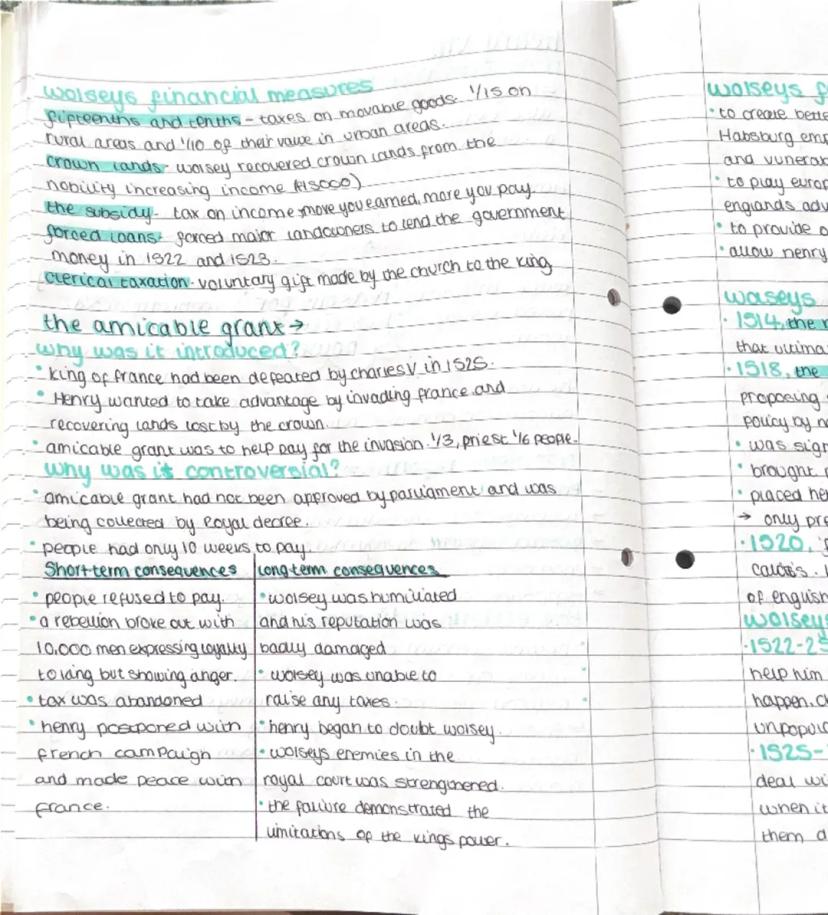 wolseys financial measures
fifteenths and tenths - taxes on movable goods. 1/15 on
rural areas and 1/10 of their value in urban areas.
crown lands - wolsey recovered crown lands from the
nobility increasing income (£15000)
the subsidy - tax on income more you earned, more you pay.
forced loans - forced major landowners to lend the government
money in 1522 and 1523.
clerical taxation - voluntary gift made by the church to the king
the amicable grant →
why was it introduced?
• king of france had been defeated by charles V in 1525.
• Henry wanted to take advantage by invading france and
recovering lands lost by the crown.
• amicable grant was to help pay for the invasion. 1/3, priest 1/6 people.
why was it controversial?
• amicable grant had not been approved by parliament and was
being collected by Royal decree.
• people had only 10 weeks to pay.
Short term consequences
• people refused to pay.
• a rebellion broke out with
10,000 men expressing loyalty
to king but showing anger.
• tax was abandoned
• henry postponed with
french campaign
and made peace with
france.
Long term consequences
• wolsey was humiliated
and his reputation was
badly damaged
• wolsey was unable to
raise any taxes.
• henry began to doubt wolsey.
• wolseys enemies in the
royal court was strengthened.
• the failure demonstrated the
limitations of the kings power.
wolseys f
• to create bette
Habsburg emp
and vunerab
• to play europ
englands adv
• to provide o
• allow henry
• 1514, the
that ultima
• 1518, the
proposing
policy by n
• was sign
• brought
• placed he
→ only pre
• 1520,
of english
wolseys
• 1522-25
help him
happen.
unpopul
• 1525-
deal wi
when it
them a